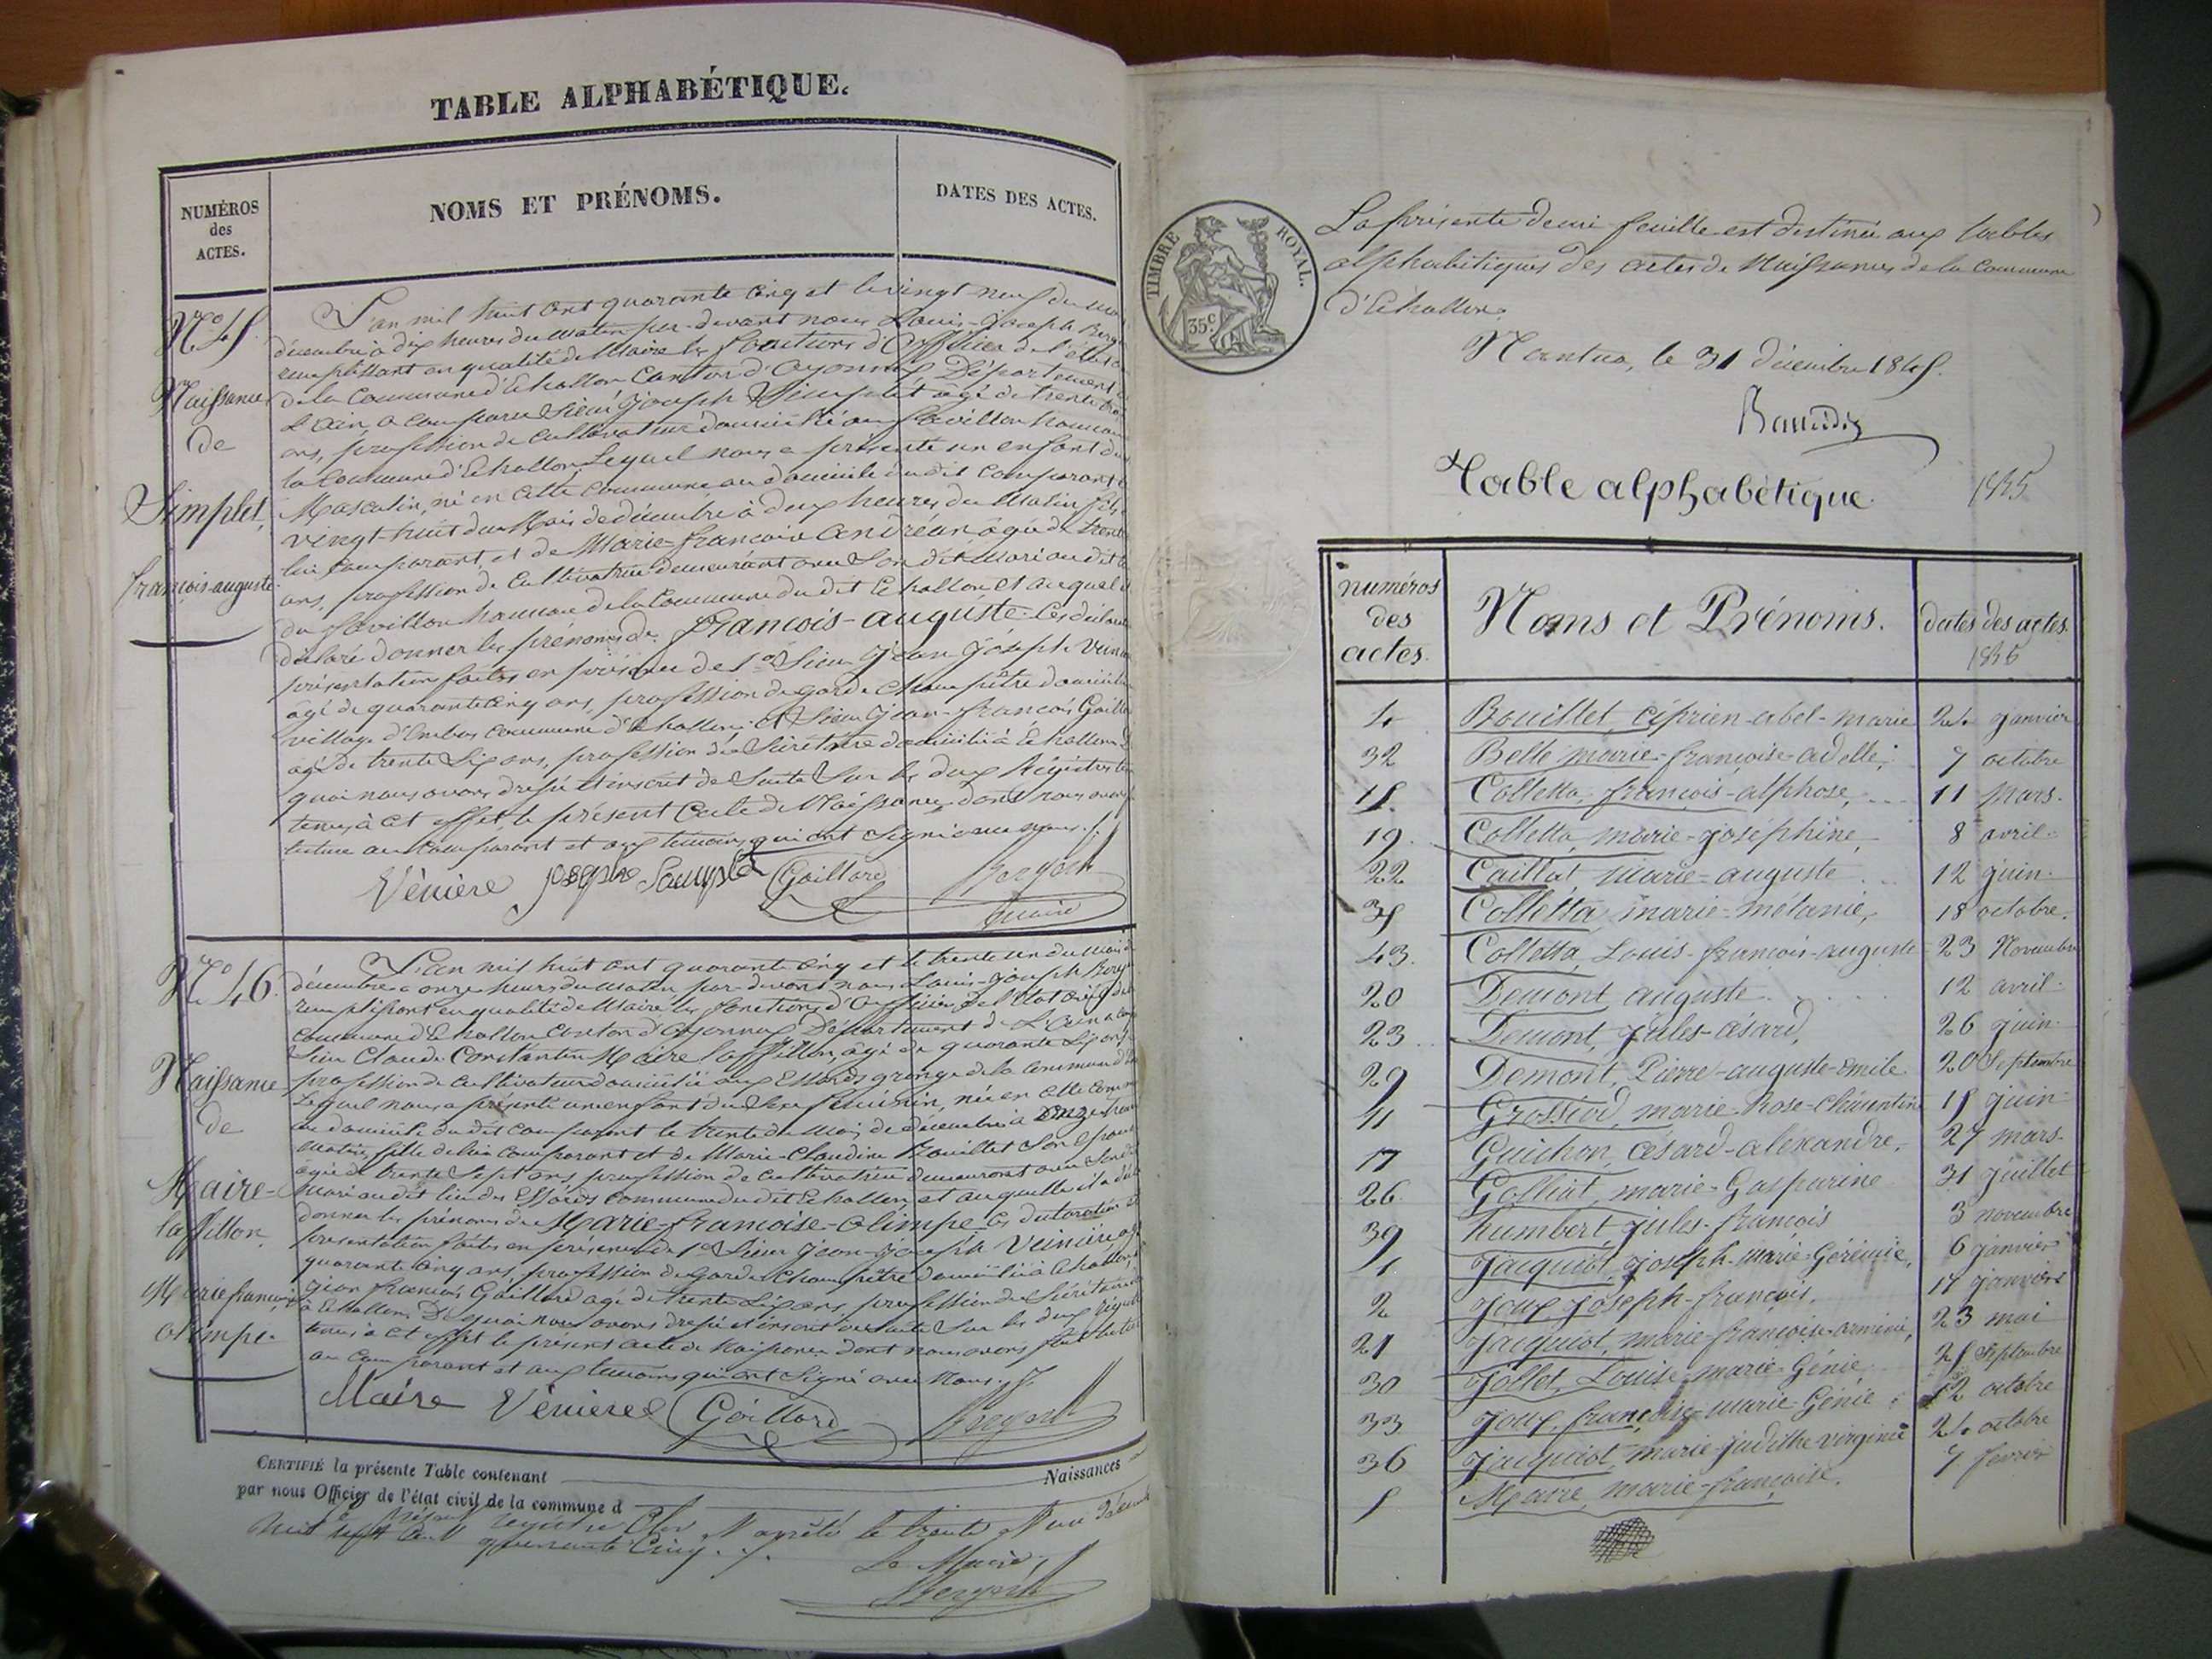 TABLE ALPHABÉTIQUE.
NUMÉROS
des
ACTES.
NOMS ET PRÉNOMS.
DATES DES ACTES.
N.º 45.
Naissance
de
Simplet,
françois-auguste
L'an mil huit cent quarante cinq et le vingt neuf du mois
décembre à dix heures du matin par-devant nous Louis-Joseph
remplissant en qualité de Maire les fonctions d'Officier de l'état
de la Commune d'Echallon Canton d'Oyonnax Département
L'Ain a comparu Sieur Joseph Simplet âgé de trente
ans, profession de cultivateur domicilié au Pavillon hameau
la Commune d'Echallon Lequel nous a présenté un enfant du
Masculin, né en cette commune au domicile du dit comparant
vingt-huit du Mois de décembre à deux heures du Matin fils
lui comparant, et de Marie-françoise Andréan âgée de trente
ans, profession de Cultivatrice demeurant avec Son dit Mari au dit
du Pavillon hameau de la Commune du dit Echallon et auquel
déclaré donner les prénoms de françois-auguste. Ces
présentation faites en présence de 1º Sieur Jean-Joseph
âgé de quarante cinq ans, profession de garde Champêtre
village d'Embas commune d'Echallon; et Sieur Jean-francois
âgé de trente Six ans, profession de Sécrétaire domicilié à Echallon
quoi nous avons dressé et inscrit de Suite Sur les deux Régistres
tenus à cet effet le présent acte de Naissance dont nous avons
lecture au Comparant et aux témoins qui ont Signé avec nous.
Vénière Joseph Sauyplet Gaillard
maire
N.º 46.
Naissance
de
Maire-
laffillon,
Marie françoise
olimpe.
L'an mil huit cent quarante cinq et le trente un du mois
décembre à onze heures du matin par-devant nous Louis-Joseph
remplissant en qualité de Maire les fonctions d'Officier de l'Etat
commune d'Echallon Canton d'Oyonnax Département de L'Ain a
Sieur Claude-Constantin Maire laffillon, âgé de quarante
profession de cultivateur domicilié aux Essards grange de la Commune
Lequel nous a présenté un enfant du Sexe féminin, née en cette
au domicile du dit comparant le trente du Mois de décembre à onze
matin, fille de lui comparant et de Marie-Claudine Bouillet Son
âgée de trente Sept ans profession de cultivatrice demeurant avec Son
mari au dit lieu des Essards commune du dit Echallon, et auquelle il a
donner les prénoms de Marie-francoise-olimpe. Ces
présentation faites en présence de 1º Sieur Jean-Joseph
quarante cinq ans, profession de garde Champêtre domicilié à Echallon
Jean francois Gaillard agé de trente Six ans, profession de Sécrétaire
à Echallon. De quoi nous avons dressé et inscrit de suite Sur les deux
tenus à cet effet le présent acte de Naissance dont nous avons fait
au comparant et aux témoins qui ont Signé avec Nous.
Maire Vénière Gaillard
CERTIFIÉ la présente Table contenant Naissances
par nous Officier de l'état civil de la commune d
Le présent registre Clos et arrêté le trente et un
mil huit cent quarante Cinq.
Le Maire
La présente demi-feuille est destinée aux tables
alphabétiques des actes de Naissances de la Commune
d'Echallon.
Nantua, le 31 décembre 1845.
TIMBRE ROYAL.
35 C
Table alphabétique. 1845
numéros
des
actes.
Noms et Prénoms.
dates des actes.
4 Bouillet, Ciprien-abel-marie 24 janvier
32 Belle marie-françoise-adelle; 7 octobre
15. Colletta, françois-alphose, 11 mars.
19. Colletta, marie-joséphine, 8 avril.
22 Caillat, marie-auguste 12 juin.
35 Colletta, marie-mélanie, 18 octobre.
43. Colletta, Louis-françois-auguste 23 Novembre
20 Démont auguste 12 avril.
23 Démont, jules-césard, 26 juin.
29 Démont, Pierre-auguste-émile 20 Septembre
11 Grossiod, marie-Rose-Clémentine 15 juin
17 Guichon, césard-alexandre. 27 mars.
26. Golliat, marie-Gasparine 31 juillet
39 humbert, jules-françois 3 novembre
1 Jacquiot, joseph-marie-Gérémie, 6 janvier
2 Joux Joseph-francois. 15 janvier
21 Jacquiot, marie-françoise-arménie, 23 mai
30 Jollet, Louise-marie-Génie 25 Septembre
33 Joux, françoise-marie-Génie 12 octobre
36 Jacquiot, marie-judithe virginie 24 octobre
5 Maire, marie-françoise. 7 fevrier